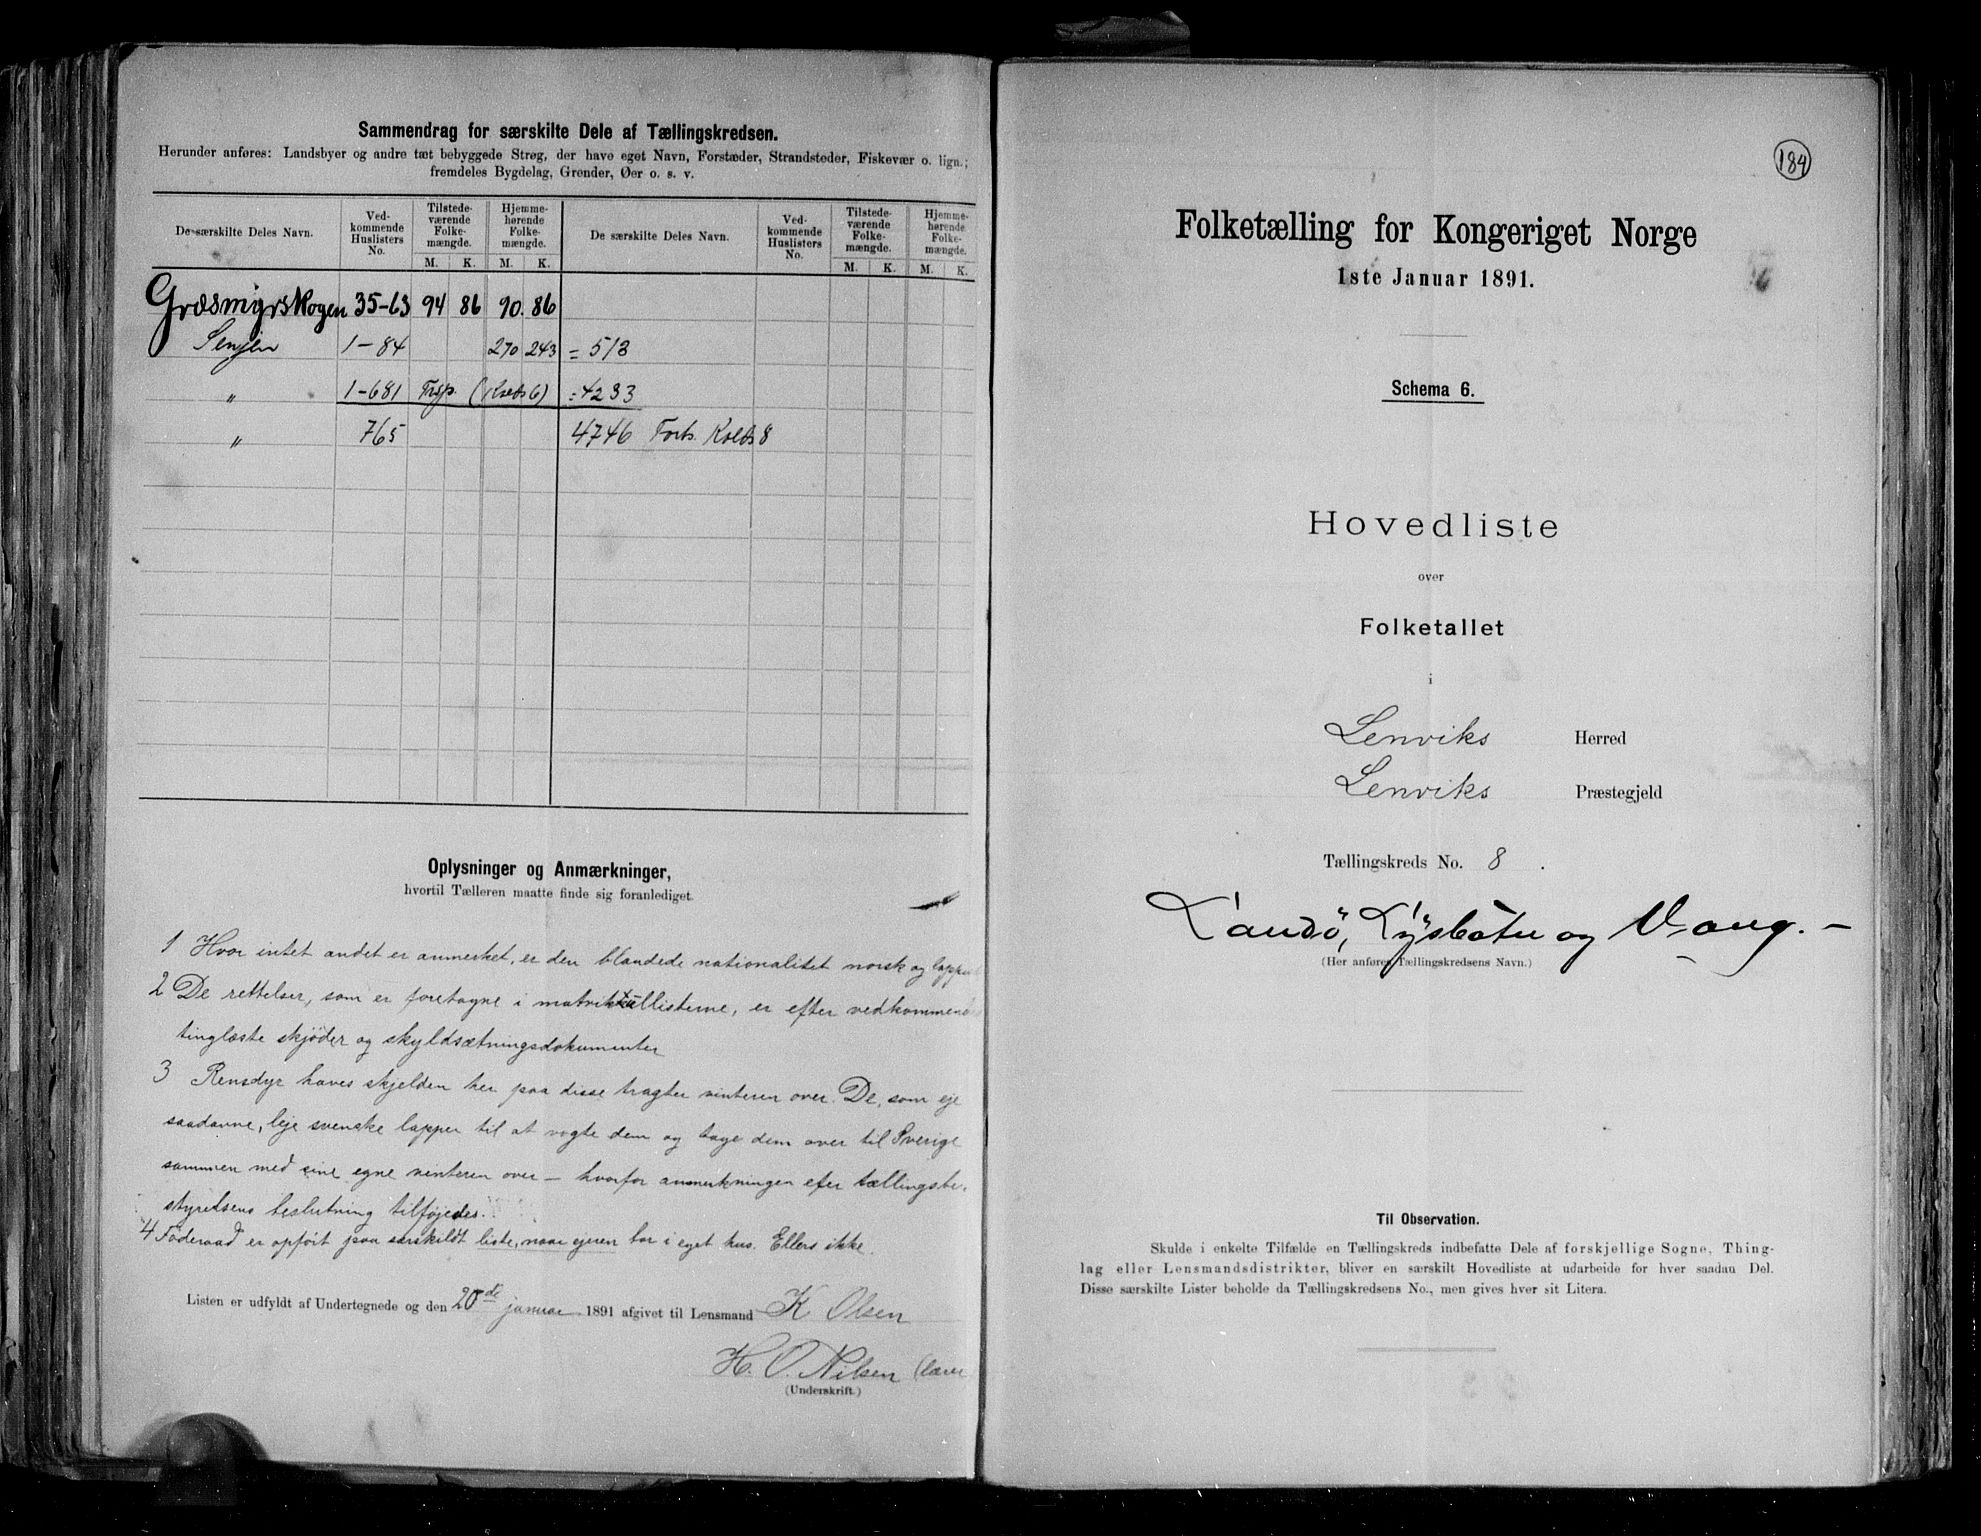 Sammendrag for særskilte Dele af Tællingskredsen.
Herunder anføres: Landsbyer og andre tæt bebyggede Strøg, der have eget Navn, Forstæder, Strandsteder, Fiskevær o. lign.;
fremdeles Bygdelag, Grender, Øer o. s. v.
De særskilte Deles Navn. Vedkommende Huslisters No. Tilstedeværende Folkemængde. Hjemmehørende Folkemængde. De særskilte Deles Navn. Vedkommende Huslisters No. Tilstedeværende Folkemængde. Hjemmehørende Folkemængde.
M. K. M. K. M. K. M. K.
Græsmyrskogen 35-63 94 86 90. 86
Senjen 1-84 270 243 = 513
" 1-681 Trsp. (Kreds 6) = 4233
" 765 4746 Forts. Kreds 8
Oplysninger og Anmærkninger,
hvortil Tælleren maatte finde sig foranlediget.
1 Hvor intet andet er anmerket, er den blandede nationalitet norsk og
2 De rettelser, som er foretagne i matrikkullisterne, er efter
tinglæste skjøder og skyldsætningsdokumenter
3 Rensdyr haves skjelden her paa disse tragter vinteren over. De, som eje
saadanne, leje svenske lapper til at vogte dem og tage dem over til Sverige
sammen med sine egne vinteren over — hvorfor anmerkningen efter tællingsbe-
styrelsens beslutning tilføjedes.
4 Føderaad er opført paa særskildt liste, naar ejeren bor i eget hus. Ellers ikke.
Listen er udfyldt af Undertegnede og den 20de januar 1891 afgivet til Lensmand K Olsen
H. O. Nilsen
(Underskrift.)
184
Folketælling for Kongeriget Norge
1ste Januar 1891.
Schema 6.
Hovedliste
over
Folketallet
i
Lenviks Herred
Lenviks Præstegjeld
Tællingskreds No. 8.
Landø, Lysbotn og Vang. —
(Her anføres Tællingskredsens Navn.)
Til Observation.
Skulde i enkelte Tilfælde en Tællingskreds indbefatte Dele af forskjellige Sogne, Thing-
lag eller Lensmandsdistrikter, bliver en særskilt Hovedliste at udarbeide for hver saadan Del.
Disse særskilte Lister beholde da Tællingskredsens No., men gives hver sit Litera.